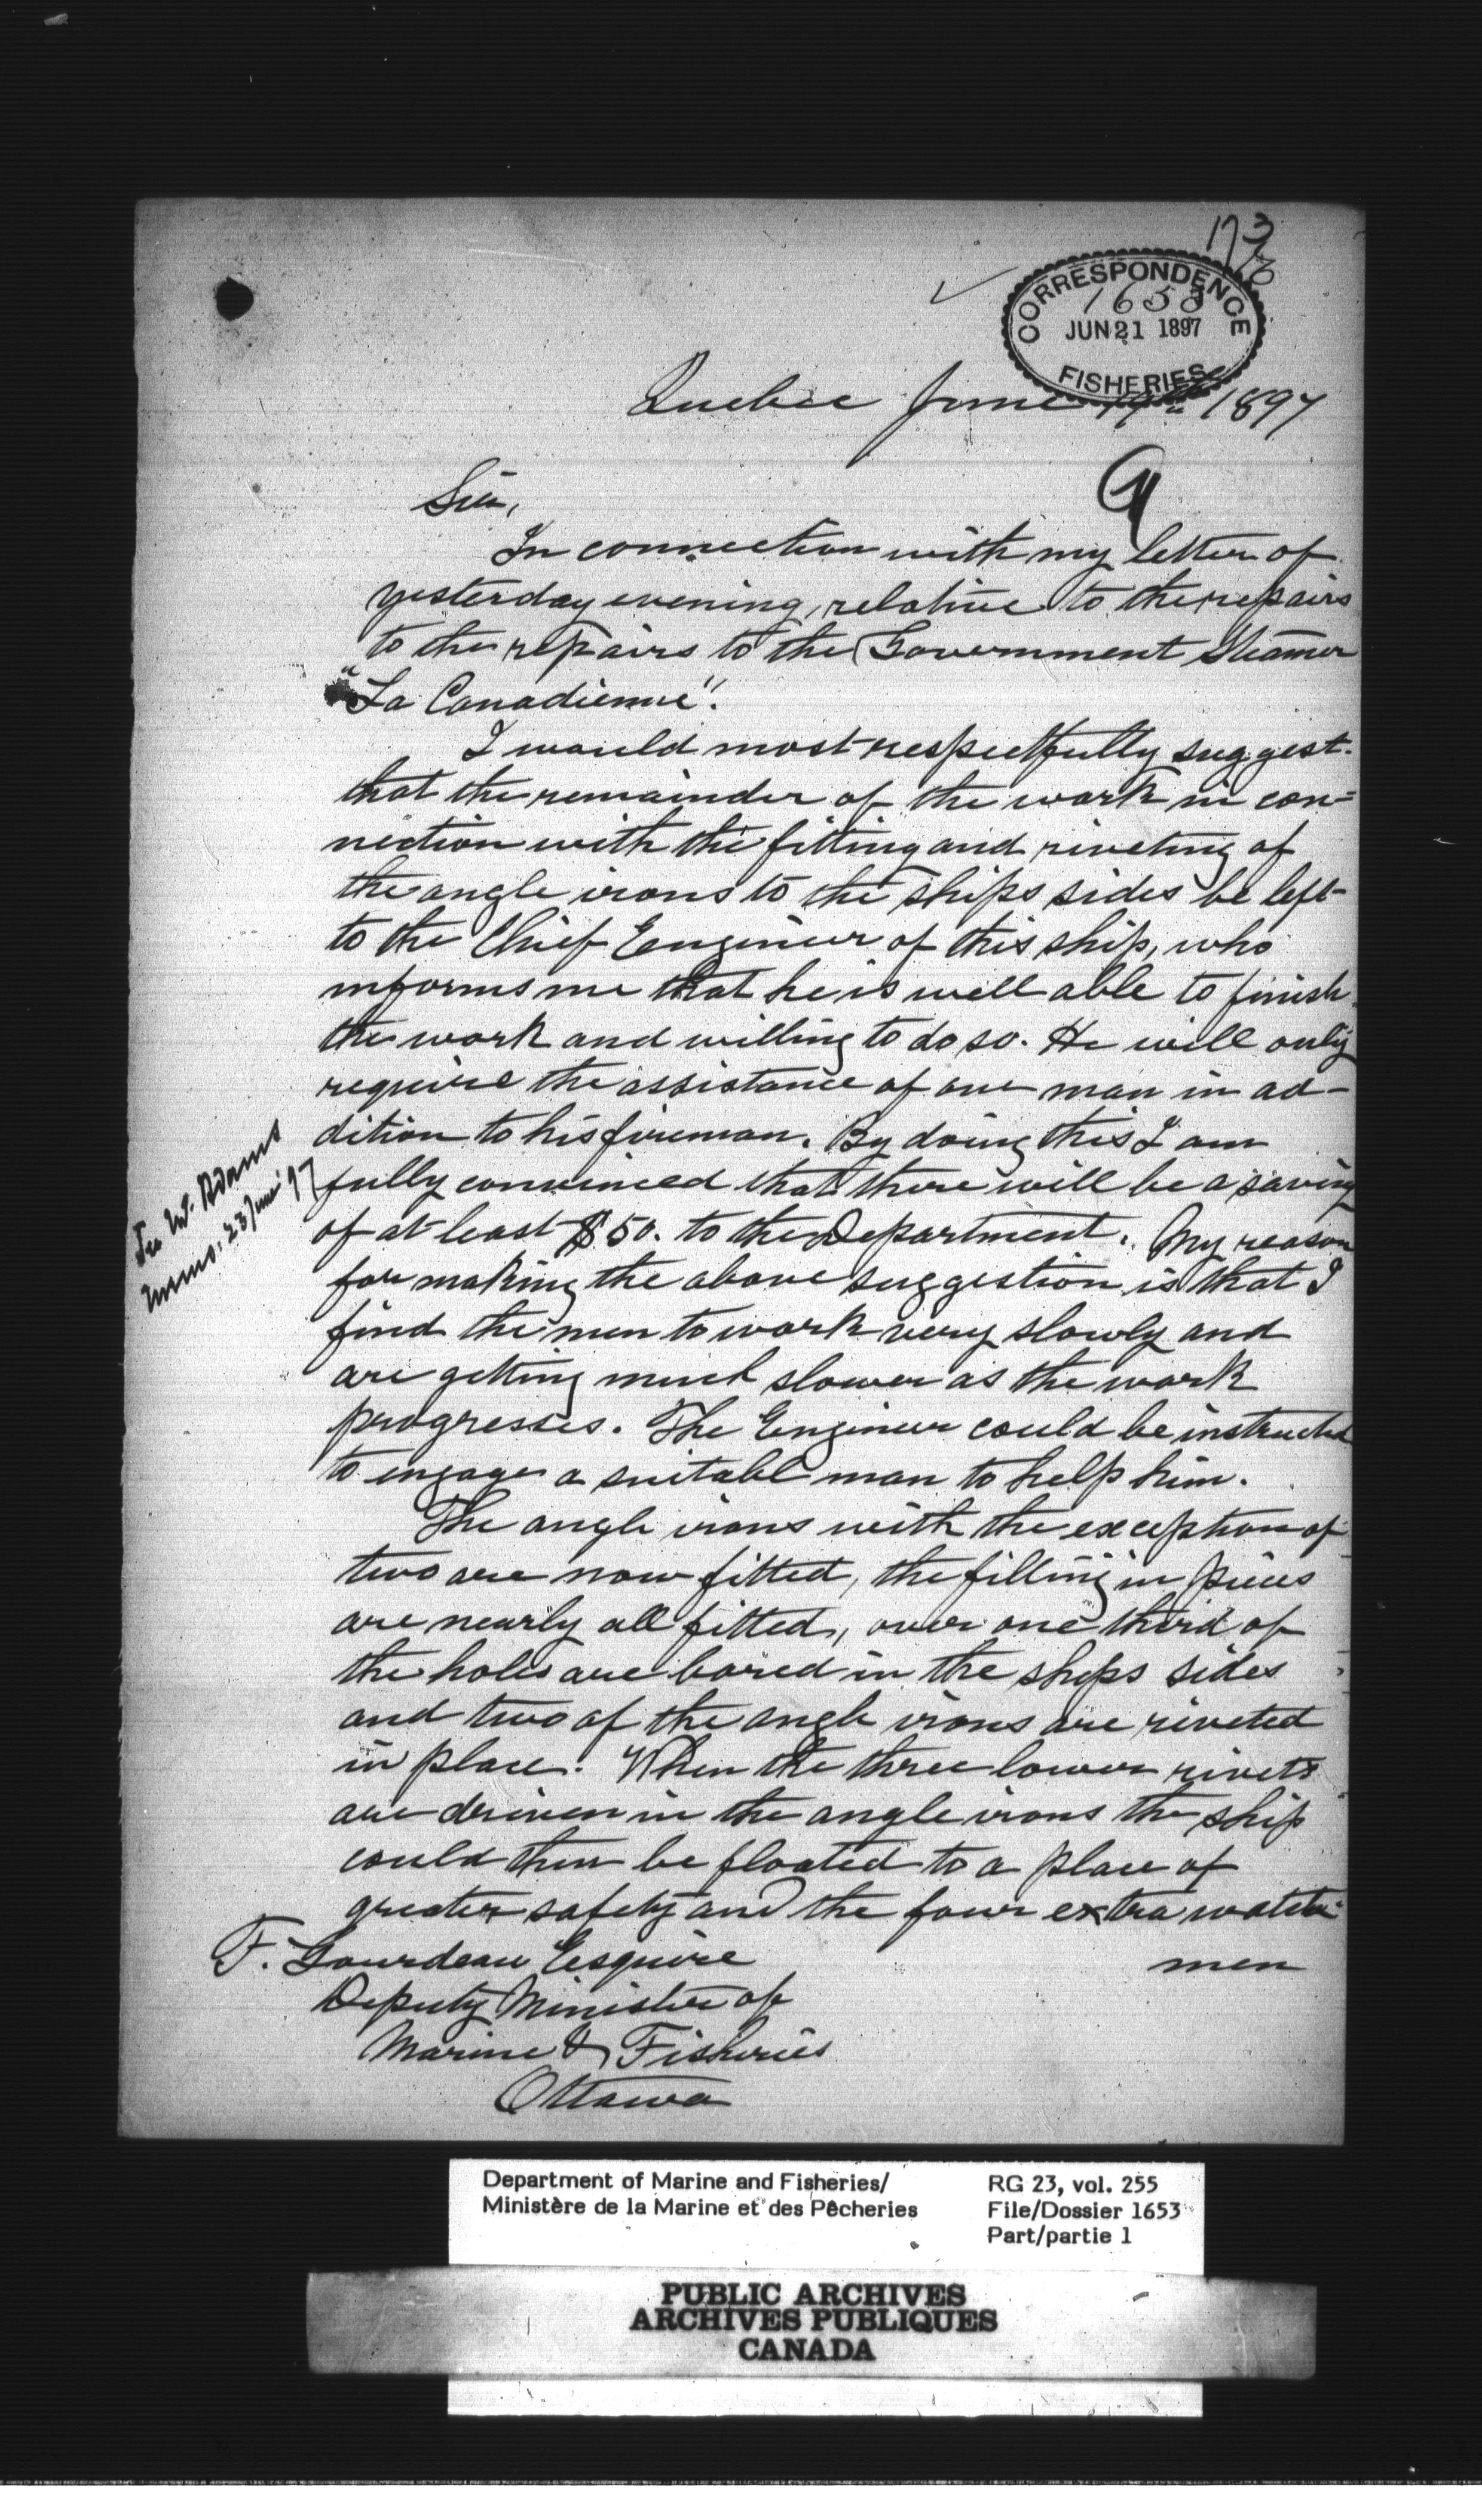 173
CORRESPONDENCE
1653
JUN 21 1897
FISHERIES
Quebec June 19th 1897
Sir,
In connection with my letter of
yesterday evening, relative to the repairs
to the repairs to the Government Steamer
"La Canadienne".
I would most respectfully suggest
that the remainder of the work in con=
nection with the fitting and riveting of
the angle irons to the ships sides be left
to the Chief Engineer of this ship, who
informs me that he is well able to finish
the work and willing to do so. He will only
require the assistance of one man in ad-
dition to his fireman. By doing this I am
fully convinced that there will be a saving
of at least $50. to the Department. My reason
for making the above suggestion is that I
find the men to work very slowly and
are getting much slower as the work
progresses. The Engineer could be instructed
to engage a suitable man to help him.
The angle irons with the exception of
two are now fitted, the filling in pieces
are nearly all fitted, over one third of
the holes are bored in the ships sides
and two of the angle irons are riveted
in place. When the three lower rivets
are driven in the angle irons the ship
could then be floated to a place of
greater safety and the four extra watch
men
F. Gourdeau Esquire
Deputy Minister of
Marine & Fisheries
Ottawa
See W. Adams
memo, 23 June '97
Department of Marine and Fisheries/
Ministère de la Marine et des Pêcheries
RG 23, vol. 255
File/Dossier 1653
Part/partie 1
PUBLIC ARCHIVES
ARCHIVES PUBLIQUES
CANADA